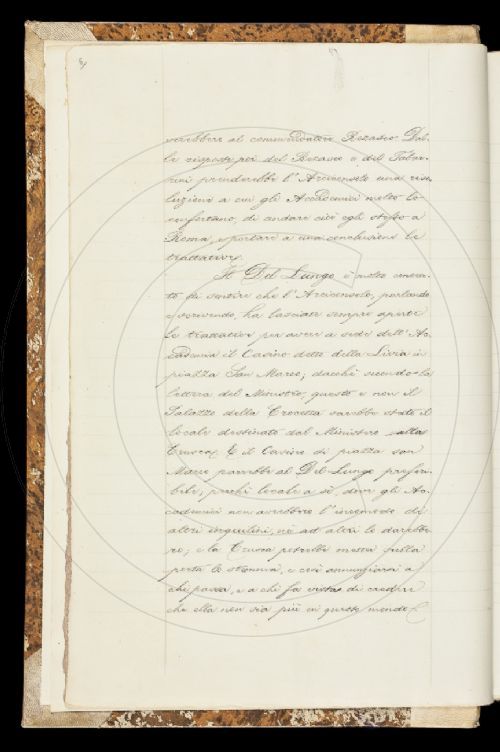 verebbero al commendatore Bezasco. Dal-
le risposte poi del Bezasco e del Tabar-
rini prenderebbe l'Arciconsolo una riso-
luzione a cui gli Accademici molto lo
confortano, di andare cioè egli stesso a
Roma, e portare a una conclusione le
trattative.
Il Del Lungo è molto conten-
to di sentire che l'Arciconsolo, parlando
e scrivendo, ha lasciate sempre aperte
le trattative per avere a sede dell'Ac-
cademia il Casino detto della Livia in
piazza San Marco; dacchè secondo la
lettera del Ministro, questo e non il
Palazzo della Crocetta sarebbe stato il
locale destinato dal Ministro alla
Crusca. E il Casino di piazza San
Marco parrebbe al Del Lungo preferi-
bile, perchè locale a sè, dove gli Ac-
cademici non avrebbero l'incomodo di
altri inquilini, nè ad altri lo darebbe-
ro; e la Crusca potrebbe metter sulla
porta lo stemma, e così annunziarsi a
chi passa, e a chi fa vista di credere
che ella non sia più in questo mondo.